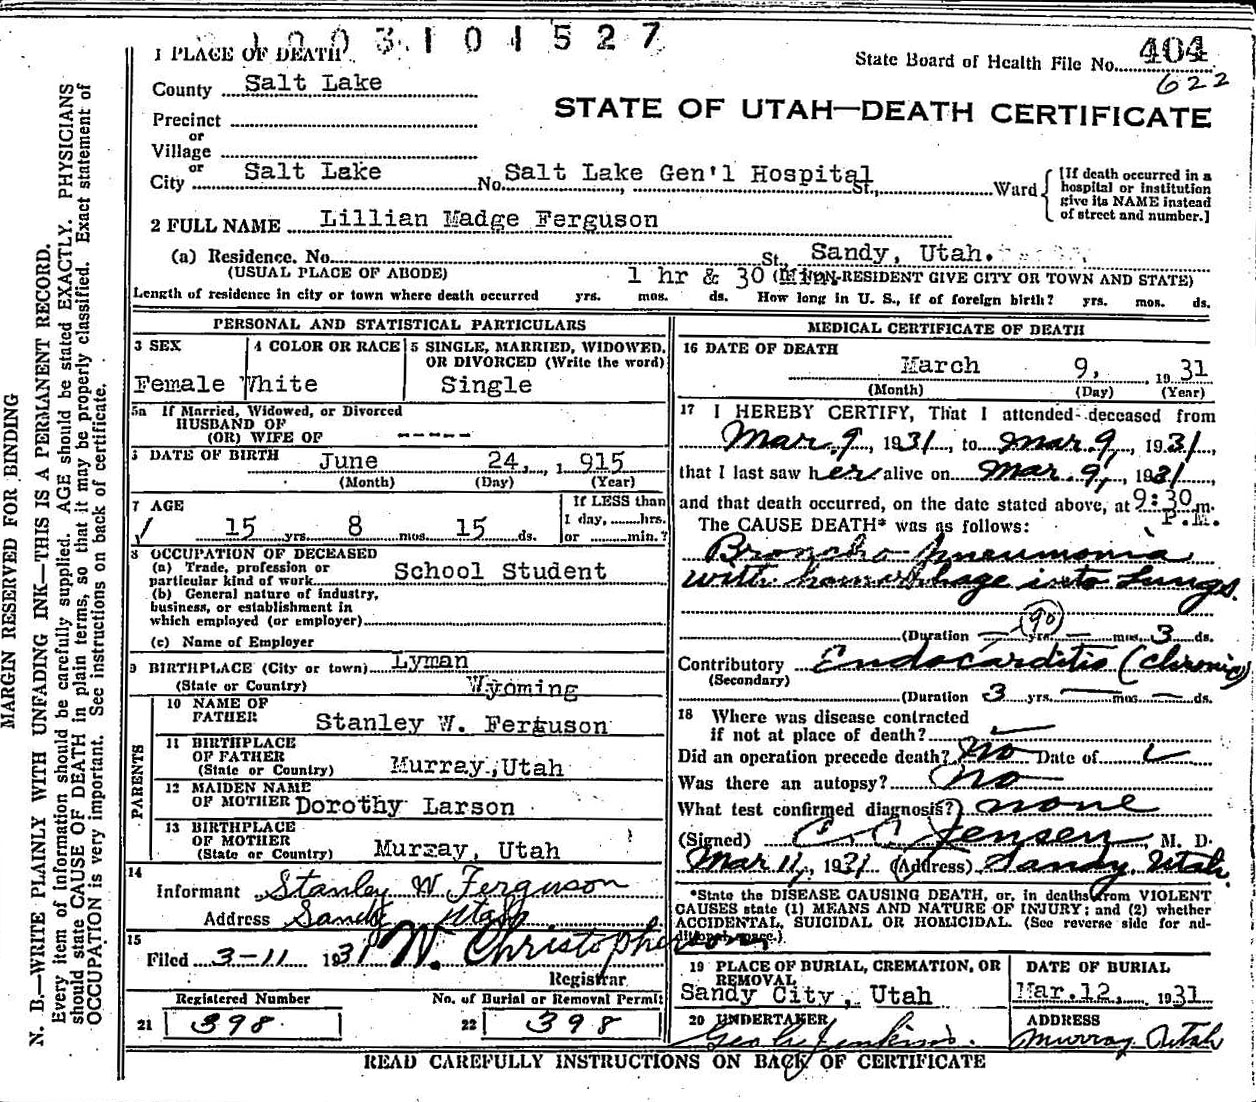 1003101527
1 PLACE OF DEATH
State Board of Health File No. 404
622
County Salt Lake
STATE OF UTAH—DEATH CERTIFICATE
Precinct
or
Village
or
City Salt Lake No. Salt Lake Gen'l Hospital St., Ward
[If death occurred in a
hospital or institution
give its NAME instead
of street and number.]
2 FULL NAME Lillian Madge Ferguson
(a) Residence. No. St. Sandy, Utah.
(USUAL PLACE OF ABODE) 1 hr & 30 Min. NON-RESIDENT GIVE CITY OR TOWN AND STATE)
Length of residence in city or town where death occurred yrs. mos. ds. How long in U. S., if of foreign birth? yrs. mos. ds.
PERSONAL AND STATISTICAL PARTICULARS
3 SEX
Female
4 COLOR OR RACE
White
5 SINGLE, MARRIED, WIDOWED,
OR DIVORCED (Write the word)
Single
5a If Married, Widowed, or Divorced
HUSBAND OF
(OR) WIFE OF -----
6 DATE OF BIRTH June 24, 1915
(Month) (Day) (Year)
7 AGE
15 yrs. 8 mos. 15 ds.
If LESS than
1 day, hrs.
or min.?
8 OCCUPATION OF DECEASED
(a) Trade, profession or
particular kind of work School Student
(b) General nature of industry,
business, or establishment in
which employed (or employer)
(c) Name of Employer
9 BIRTHPLACE (City or town) Lyman
(State or Country) Wyoming
PARENTS
10 NAME OF
FATHER Stanley W. Ferguson
11 BIRTHPLACE
OF FATHER
(State or Country) Murray, Utah
12 MAIDEN NAME
OF MOTHER Dorothy Larson
13 BIRTHPLACE
OF MOTHER
(State or Country) Murray, Utah
14
Informant Stanley W Ferguson
Address Sandy Utah
15
Filed 3-11 1931 W. Christopherson
Registrar
Registered Number
21 398
No. of Burial or Removal Permit
22 398
MEDICAL CERTIFICATE OF DEATH
16 DATE OF DEATH
March 9, 1931
(Month) (Day) (Year)
17 I HEREBY CERTIFY, That I attended deceased from
Mar. 9, 1931 to Mar. 9, 1931,
that I last saw her alive on Mar. 9, 1931,
and that death occurred, on the date stated above, at 9:30 m.
P.M.
The CAUSE DEATH* was as follows:
Broncho pneumonia
with hemorrhage into Lungs.
90
(Duration — yrs. — mos. 3 ds.
Contributory Endocarditis (chronic)
(Secondary)
(Duration 3 yrs. — mos. — ds.
18 Where was disease contracted
if not at place of death?
Did an operation precede death? No Date of
Was there an autopsy? No
What test confirmed diagnosis? none
(Signed) C C Jensen, M. D.
Mar 11, 1931 (Address) Sandy Utah.
*State the DISEASE CAUSING DEATH, or, in deaths from VIOLENT
CAUSES state (1) MEANS AND NATURE OF INJURY; and (2) whether
ACCIDENTAL, SUICIDAL OR HOMICIDAL. (See reverse side for ad-
ditional space.)
19 PLACE OF BURIAL, CREMATION, OR
REMOVAL
Sandy City, Utah
DATE OF BURIAL
Mar. 12, 1931
20 UNDERTAKER
Jenkins.
ADDRESS
Murray Utah
READ CAREFULLY INSTRUCTIONS ON BACK OF CERTIFICATE
MARGIN RESERVED FOR BINDING
N. B.—WRITE PLAINLY WITH UNFADING INK—THIS IS A PERMANENT RECORD.
Every item of information should be carefully supplied. AGE should be stated EXACTLY. PHYSICIANS
should state CAUSE OF DEATH in plain terms, so that it may be properly classified. Exact statement of
OCCUPATION is very important. See instructions on back of certificate.